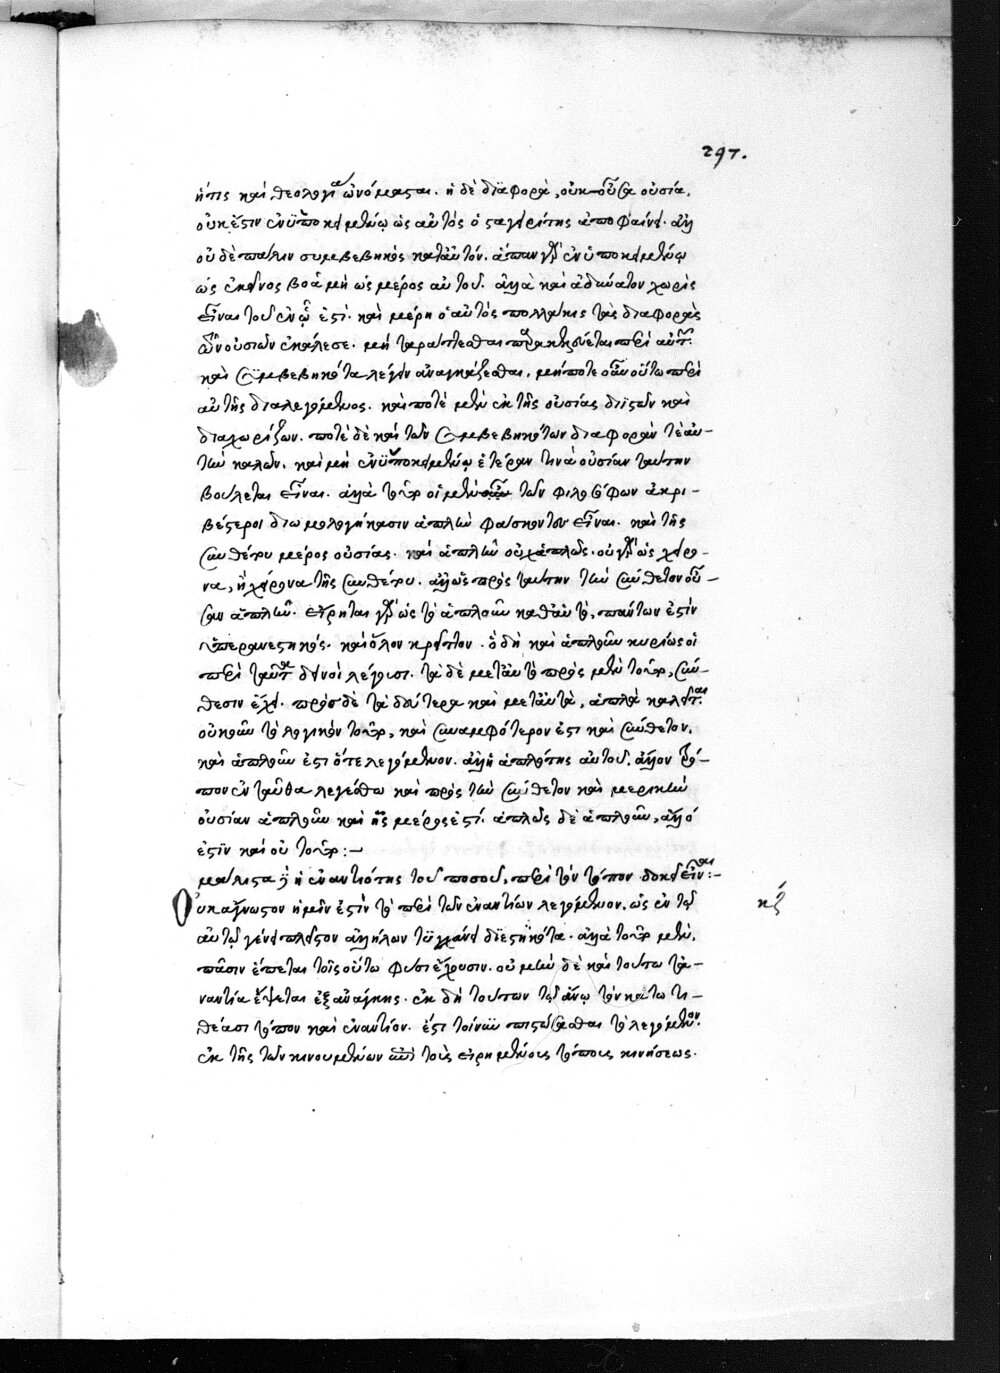 297.
ἥτις καὶ θεολογία ὠνόμασται. ἡ δὲ διαφορὰ, οὐκ οὖσα οὐσία,
οὐκ ἔστιν ἐν ὑποκειμένῳ ὡς αὐτὸς ὁ σταγειρίτης ἀποφαίνει. ἀλλ'
οὐδὲ πάλιν συμβεβηκὸς κατ' αὐτόν. ἅπαν γὰρ ἐν ὑποκειμένῳ
ὡς ἐκεῖνος βοᾷ μὴ ὡς μέρος αὐτοῦ. ἀλλὰ καὶ ἀδύνατον χωρὶς
εἶναι τοῦ ἐν ᾧ ἐστι. καὶ μέρη ὁ αὐτὸς πολλάκις τὰς διαφορὰς
τῶν οὐσιῶν ἐκάλεσε. μὴ ταράττεσθαι περὶ αὐτ
καὶ συμβεβηκότα λέγειν ἀναγκάζεσθαι. μήποτε οὖν οὕτω περὶ
αὐτῆς διαλεγόμενος. καὶ ποτὲ μὲν ἐκ τῆς οὐσίας διϊστῶν καὶ
διαχωρίζων. ποτὲ δὲ καὶ τῶν συμβεβηκότων διαφορὰν τὲ αὐ-
τὴν καλῶν. καὶ μὴ ἐν ὑποκειμένῳ ἑτέραν τινὰ οὐσίαν ταύτην
βούλεται εἶναι. ἀλλὰ τοῦτο οἱ μὲν τῶν φιλοσόφων ἀκρι-
βέστεροι διωμολογήκασιν ἁπλῆν φάσκοντες εἶναι. καὶ τῆς
συνθέτου μέρος οὐσίας. καὶ ἁπλῆν οὐχ ἁπλῶς. οὐ γὰρ ὡς χείρο-
να, ἢ χείρονα τῆς συνθέτου. ἀλλ' ὡς πρὸς ταύτην τὴν σύνθετον οὖ-
σαν ἁπλῆν. εἴρηται γὰρ ὡς τὸ ἁπλοῦν καθ' αὑτὸ, πάντων ἐστὶν
ὑπερανεστηκός. καὶ ὅλον κρεῖττον. ὃ δὴ καὶ ἁπλοῦν κυρίως οἱ
περὶ ταῦτα δεινοὶ λέγουσι. τὰ δὲ μετ' αὐτὸ πρὸς μὲν τοῦτο, σύν-
θεσιν ἔχει. πρὸς δὲ τὰ δεύτερα καὶ μετ' αὐτὰ, ἁπλᾶ καλεῖται.
οὐκοῦν τὸ λογικὸν τοῦτο, καὶ συναμφότερον ἐστὶ καὶ σύνθετον.
καὶ ἁπλοῦν ἐστι ὅτε λεγόμενον. ἀλλ' ἡ ἁπλότης αὐτοῦ, ἄλλον τρό-
πον ἐνταῦθα λεγέσθω καὶ πρὸς τὴν σύνθετον καὶ μερικὴν
οὐσίαν ἁπλοῦν καὶ ἧς μέρος ἐστί. ἁπλῶς δὲ ἁπλοῦν, ἄλλο
ἐστὶν καὶ οὐ τοῦτο :—
μάλιστα δὲ ἡ ἐναντιότης τοῦ ποσοῦ, περὶ τὸν τόπον δοκεῖ εἶναι :—
Οὐκ ἄγνωστον ἡμῖν ἐστὶν τὸ περὶ τῶν ἐναντίων λεγόμενον. ὡς ἐν τῷ
αὐτῷ γένει πλεῖστον ἀλλήλων τυγχάνει διεστηκότα. ἀλλὰ τοῦτο μὲν,
πᾶσιν ἕπεται τοῖς οὕτω φύσι ἔχουσιν. οὐ μὴν δὲ καὶ τούτω τἀ-
ναντία ἕψεται ἐξ ἀνάγκης. ἐκ δὴ τούτων τῷ ἄνω τὸν κάτω τι-
θέασι τόπον καὶ ἐναντίον. ἔστι τοίνυν πιστώσασθαι τὸ λεγόμενον.
ἐκ τῆς τῶν κινουμένων ἐπὶ τοὺς εἰρημένους τόπους κινήσεως.